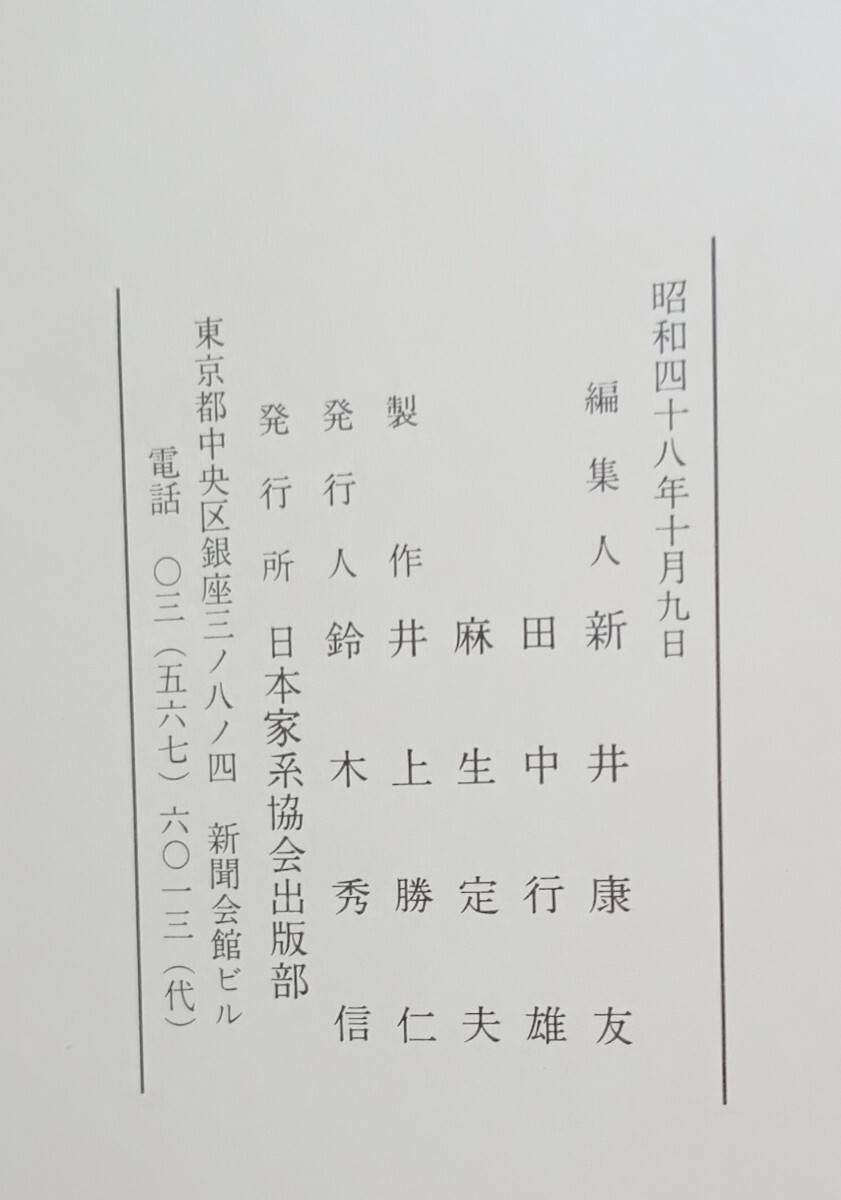 昭和四十八年十月九日
編集人 新井康友
田中行雄
麻生定夫
製作 井上勝仁
発行人 鈴木秀信
発行所 日本家系協会出版部
東京都中央区銀座三ノ八ノ四 新聞会館ビル
電話 〇三(五六七)六〇一三(代)